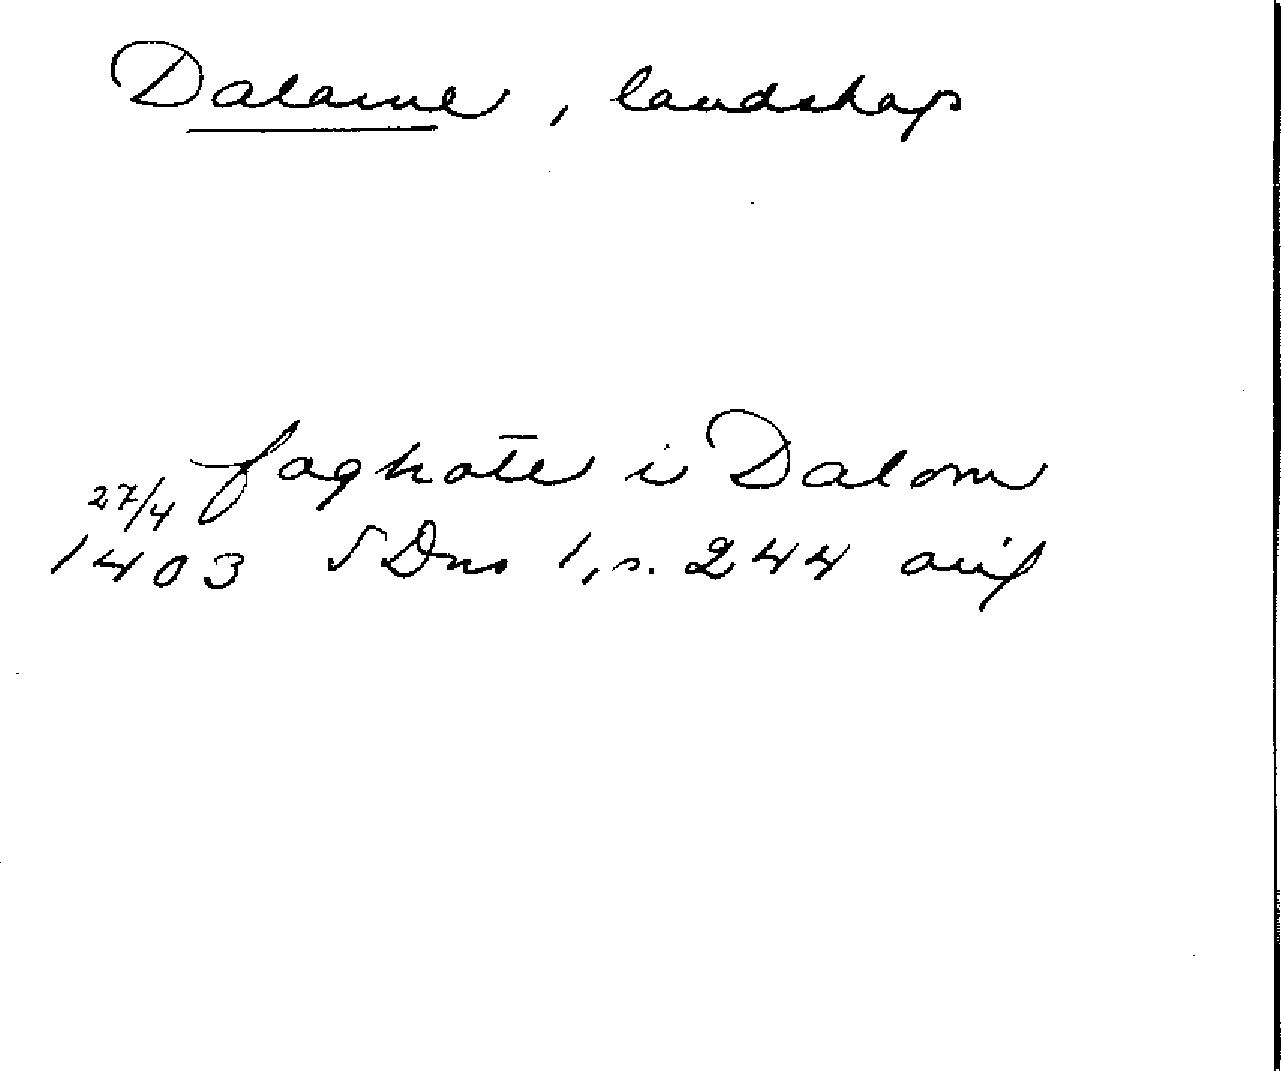 Dalarne, landskap
foghate i Dalom
27/4
1403 SDns 1, s. 244 avs